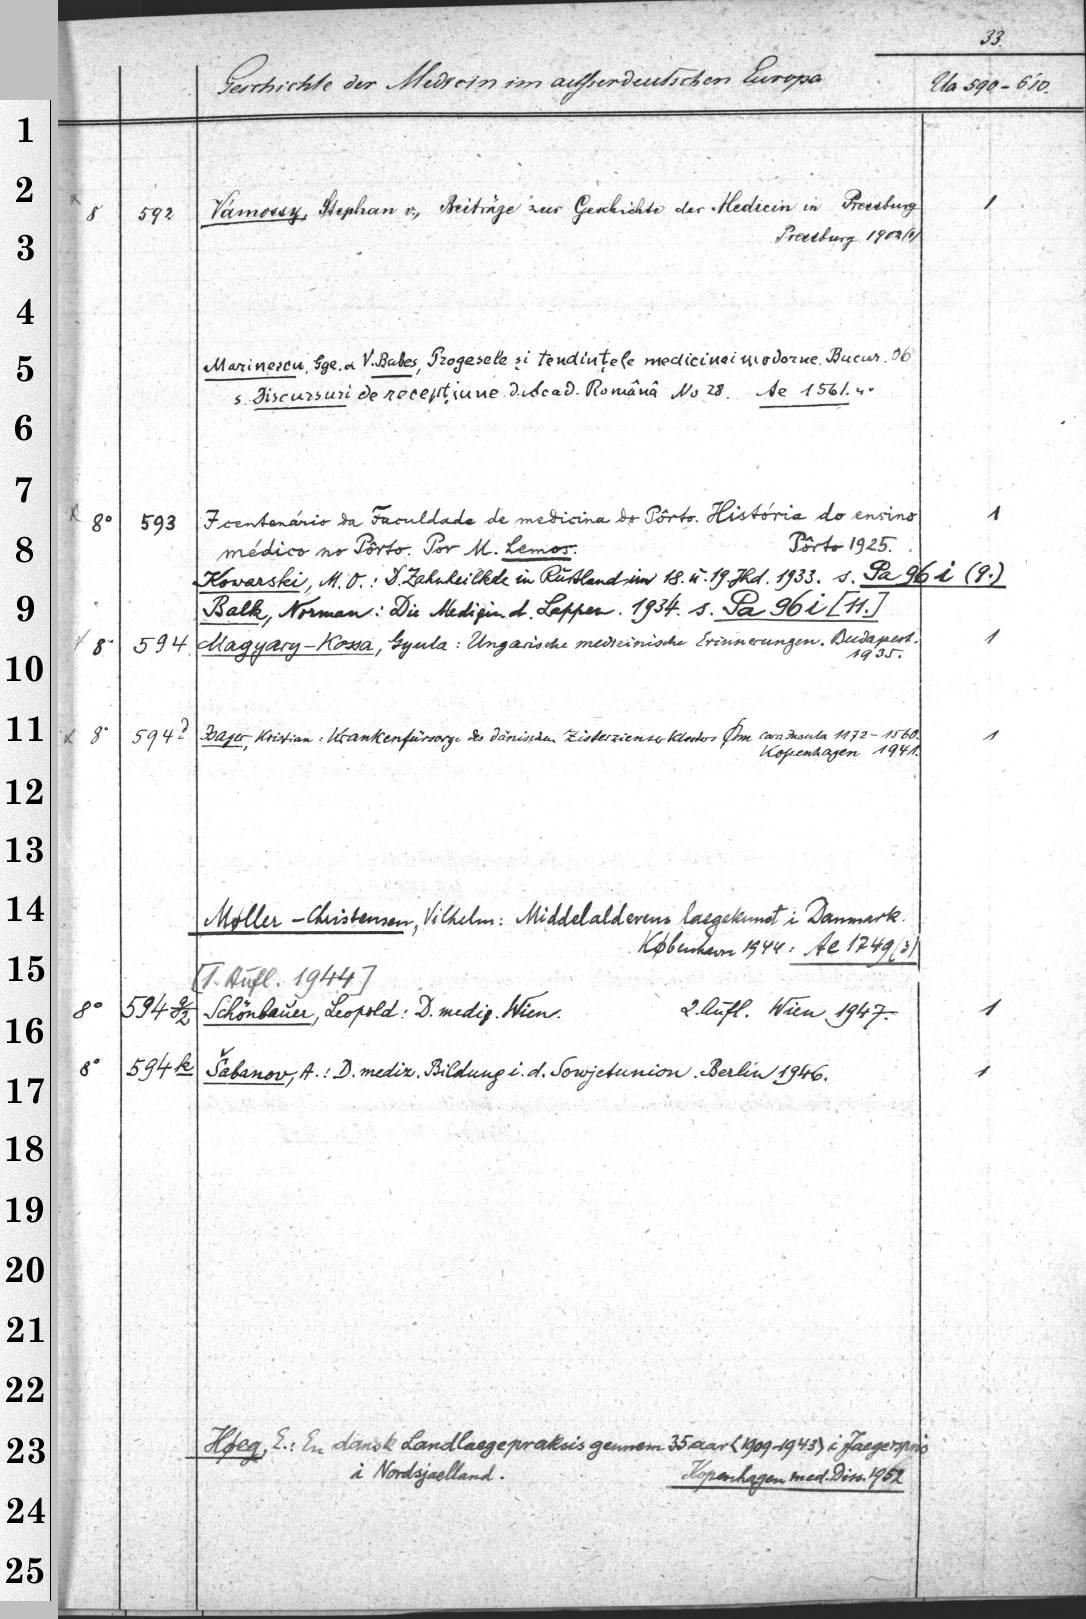 33.
Geschichte der Medicin im außerdeutschen Europa Ua 590-610.
1
2
x 8° 592 Vámossy, Stephan v., Beiträge zur Geschichte der Medicin in Pressburg 1
3
Pressburg 1902
4
5
Marinescu, Gge. a V. Babes, Progesele și tendințele medicinei moderne. Bucur. 06
s. Discursuri de recepțiune d. Acad. Română No 28. Ae 1561. 4°
6
7
x 8° 593 I centenário da Faculdade de medicina do Pôrto. História do ensino 1
8
médico no Pôrto. Por M. Lemos. Pôrto 1925.
Kowarski, M. O.: D. Zahnheilkde in Rußland im 18. u. 19 Jhd. 1933. s. Pa 96 i (9.)
9
Balk, Norman: Die Medizin d. Lappen. 1934. s. Pa 96 i [11.]
x 8° 594 Magyary-Kossa, Gyula: Ungarische medicinische Erinnerungen. Budapest. 1
1935.
10
11
x 8° 594 Bager, Kristian: Krankenfürsorge des dänischen Zisterzienser Klosters Øm cara Insula 1172-1560. 1
Kopenhagen 1941.
12
13
14
Møller-Christensen, Vilhelm: Middelalderens laegekunst i Danmark.
København 1944: Ae 1749 (3)
15
[1. Aufl. 1944]
8° 594 g/2 Schönbauer, Leopold: D. mediz. Wien. 2. Aufl. Wien 1947. 1
16
8° 594 k Šabanov, A.: D. mediz. Bildung i. d. Sowjetunion. Berlin 1946. 1
17
18
19
20
21
22
23
Høeg, E.: En dansk Landlaegepraksis gennem 35 aar (1909-1943) i Jaegerspris
i Nordsjaelland. Kopenhagen med. Diss. 1952
24
25